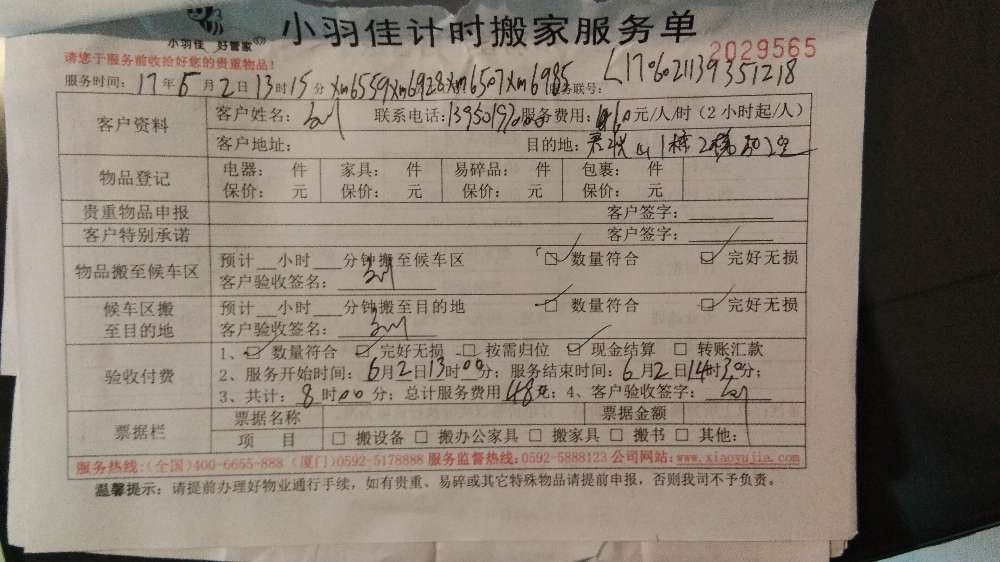 小羽佳 好管家
小羽佳计时搬家服务单
2029565
请您于服务前收拾好您的贵重物品！
服务时间：17年6月2日13时15分 xm6559xm6928xm6507xm6985 服务联号：L1706021139351218
客户资料
客户姓名： 联系电话： 服务费用： 60元/人/时（2小时起/人）
客户地址： 目的地：
物品登记
电器： 件 家具： 件 易碎品： 件 包裹： 件
保价： 元 保价： 元 保价： 元 保价： 元
贵重物品申报 客户签字：
客户特别承诺 客户签字：
物品搬至候车区
预计__小时___分钟搬至候车区 □ 数量符合 □ 完好无损
客户验收签名：
候车区搬至目的地
预计__小时___分钟搬至目的地 □ 数量符合 □ 完好无损
客户验收签名：
验收付费
1、□ 数量符合 □ 完好无损 □ 按需归位 □ 现金结算 □ 转账汇款
2、服务开始时间：6月2日13时00分；服务结束时间：6月2日14时30分；
3、共计：8时00分；总计服务费用480元；4、客户验收签字：
票据栏
票据名称 票据金额
项 目 □ 搬设备 □ 搬办公家具 □ 搬家具 □ 搬书 □ 其他：
服务热线：(全国)400-6655-888 (厦门)0592-5178888 服务监督热线：0592-5888123 公司网站：www.xiaoyujia.com
温馨提示：请提前办理好物业通行手续，如有贵重、易碎或其它特殊物品请提前申报，否则我司不予负责。